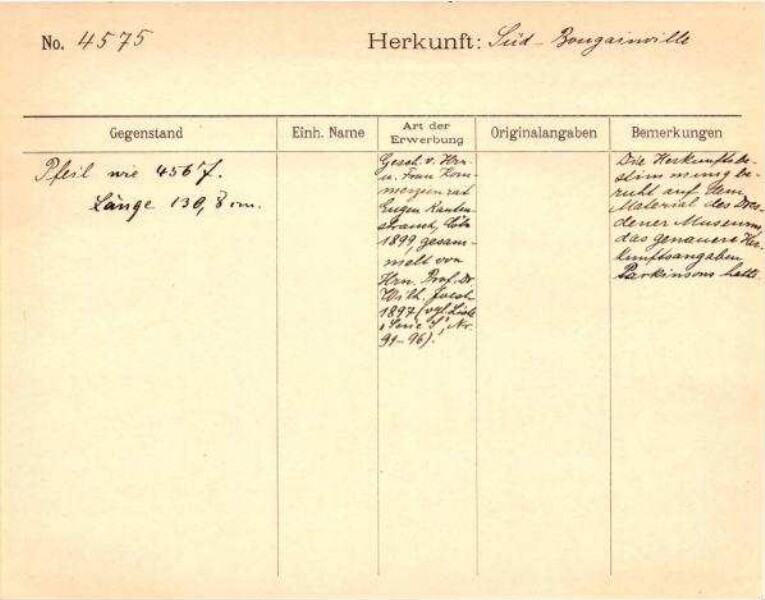 No. 4575
Herkunft: Süd-Bougainville
Gegenstand
Einh. Name
Art der Erwerbung
Originalangaben
Bemerkungen
Pfeil wie 4567.
Länge 130,8 cm.
Gesch. v. Hrn.
u. Frau Kom-
merzienrat
Eugen Rauten-
strauch, Cöln
1899, gesam-
melt von
Hrn. Prof. Dr
Wilh. Joest
1897 (vgl. Liste
"Serie S", Nr.
91-96).
Die Herkunftsbe-
stimmung be-
ruht auf dem
Material des Dres-
dener Museums,
das genauere Her-
kunftsangaben
Parkinsons hatte.